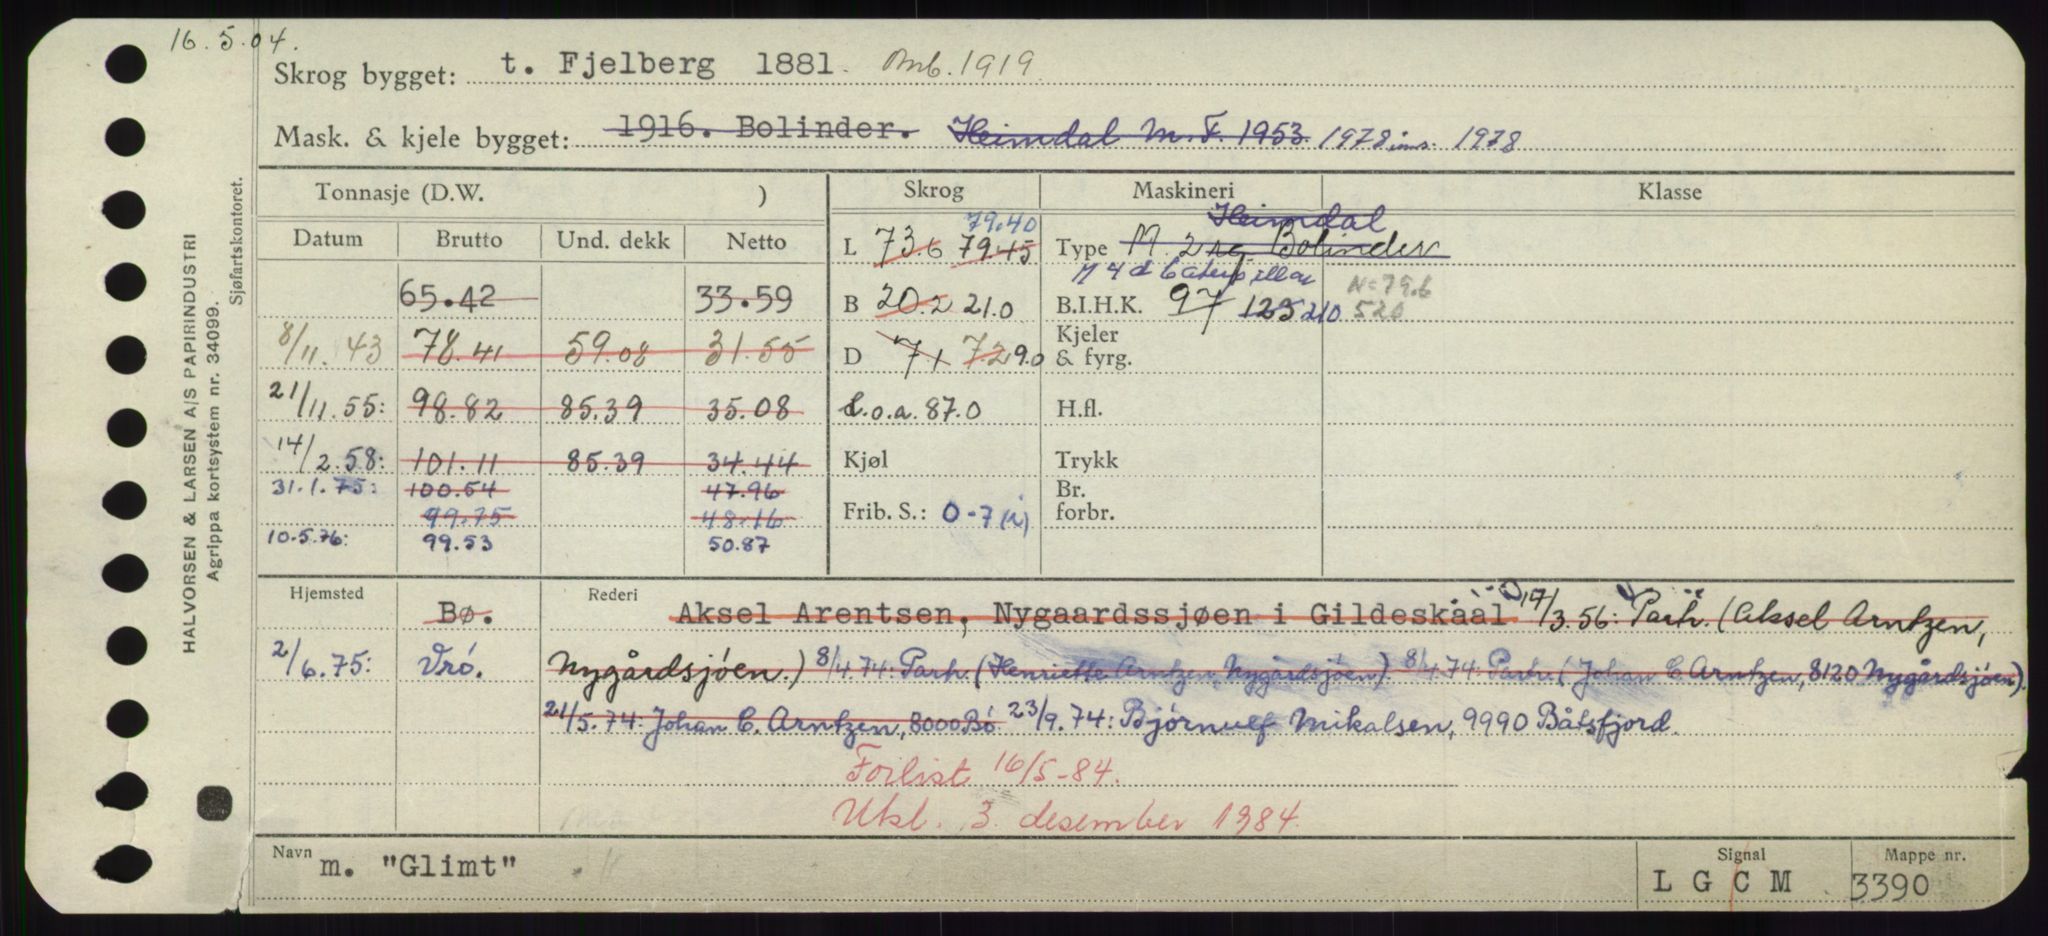 16.5.04.
Skrog bygget: t. Fjelberg 1881. Omb. 1919
Mask. & kjele bygget: 1916. Bolinder. Heimdal M.F. 1953 1978 ins. 1978
Tonnasje (D.W. ) Skrog Maskineri Klasse
Datum Brutto Und. dekk Netto
L 73.6 79.45 79.40 Type M 2 sa. Bolinder Heimdal
M 4 d Caterpillar
65.42 33.59 B 20.2 21.0 B.I.H.K. 97 125 210 N=79.6 520
8/11. 43 78.41 59.08 31.55 D 7.1 7.2 9.0 Kjeler & fyrg.
21/11.55: 98.82 85.39 35.08 L.o.a. 87.0 H.fl.
14/2.58: 101.11 85.39 34.44 Kjøl Trykk
31.1.75: 100.54 47.96 Br. forbr.
99.75 48.16 Frib. S.: 0-7 (i)
10.5.76: 99.53 50.87
Hjemsted Bø. Rederi Aksel Arentsen, Nygaardssjøen i Gildeskaal 17/3.56: Partr. (Aksel Arntzen,
2/6.75: Vrö. Nygårdsjöen.) 8/4.74: Partr. (Henriette Arntzen, Nygårdsjöen). 8/4.74: Partr. (Johan C Arntzen, 8120 Nygårdsjöen).
21/5.74: Johan C. Arntzen, 8000 Bö 23/9.74: Björnulf Mikalsen, 9990 Båtsfjord.
Forlist 16/5-84.
Utkl. 3. desember 1984.
Navn m. "Glimt" Signal L G C M Mappe nr. 3390
HALVORSEN & LARSEN A/S PAPIRINDUSTRI
Agrippa kortsystem nr. 34099.
Sjøfartskontoret.